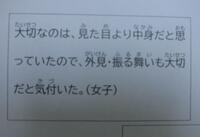 大切なのは、見た目より中身だと思
っていたので、外見・振る舞いも大切
だと気付いた。（女子）